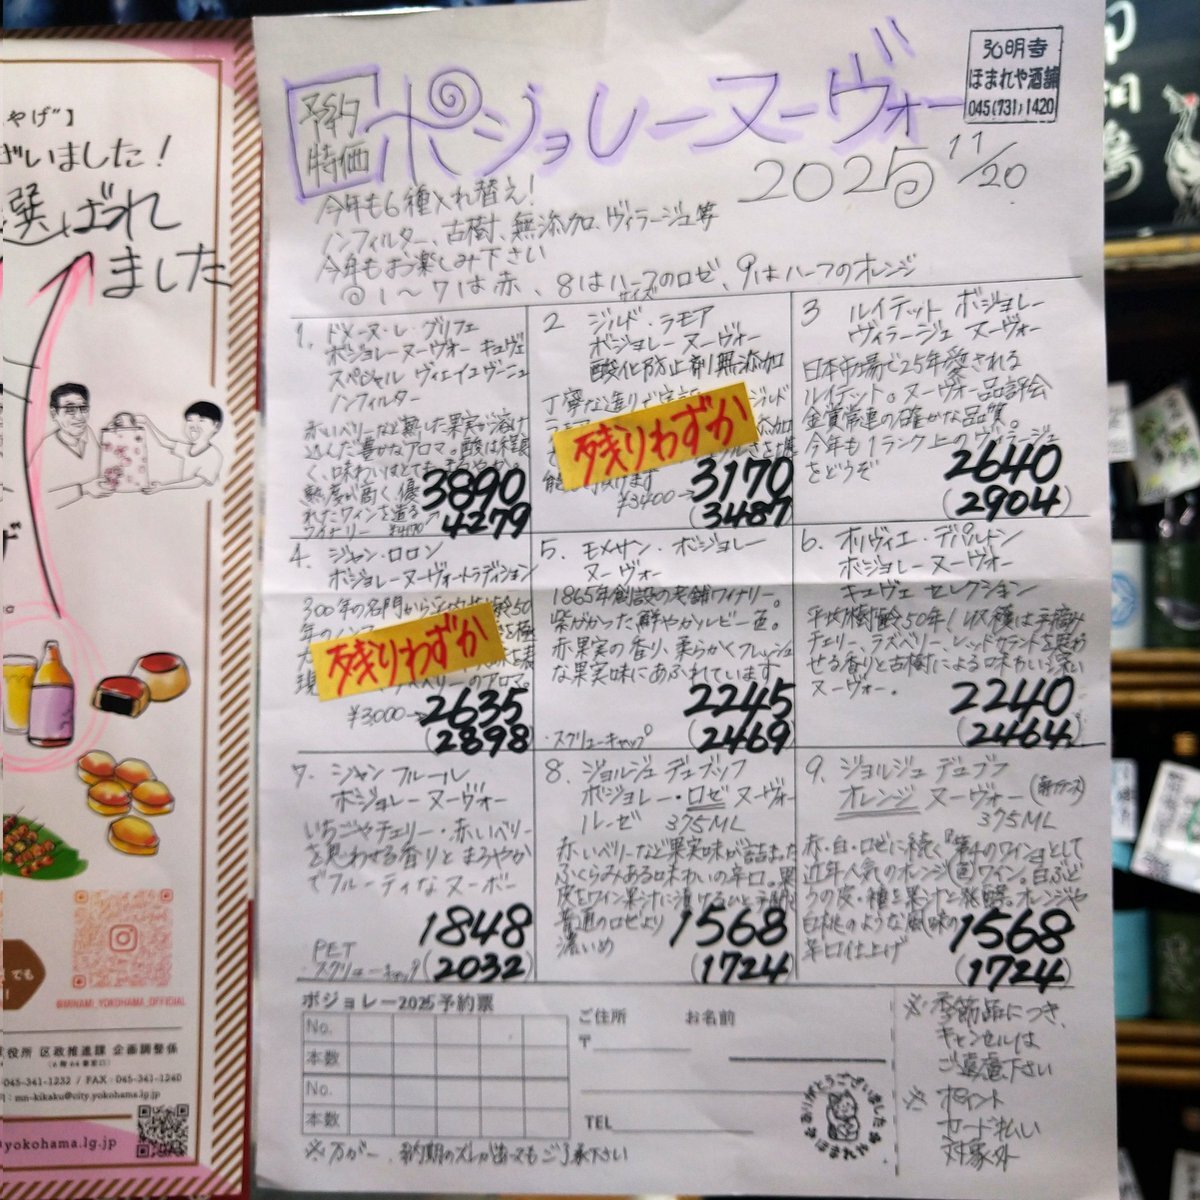 やげ"】
ざいました！
選ばれ
ました
@MINAMI_YOKOHAMA_OFFICIAL
役所 区政推進課 企画調整係
045-341-1232 / FAX : 045-341-1240
mn-kikaku@city.yokohama.lg.jp
yokohama.lg.jp
弘明寺
ほまれや酒舗
045(731)1420
予約
特価
ボジョレーヌーヴォー
2025 11/20
今年も6種入れ替え！
ノンフィルター、古樹、無添加、ヴィラージュ等
今年もお楽しみ下さい
◎1～7は赤、8はハーフサイズのロゼ、9はハーフのオレンジ
1. ドメーヌ・レ・グリフェ
ボジョレーヌーヴォー キュヴェ
スペシャル ヴィエイユヴィーニュ
ノンフィルター
赤いベリーなど熟した果実が溶け
込んだ豊かなアロマ。酸は程良
く、味わいはとても
熟度が高く、優
れたワインを造る
ワイナリー ¥4170→
3890
4279
2 ジルド・ラモア
ボジョレー ヌーヴォー
酸化防止剤無添加
丁寧な造りで
残りわずか
¥3400→3170
(3487)
3 ルイテット ボジョレー
ヴィラージュ ヌーヴォー
日本市場で25年愛される
ルイテット。ヌーヴォー品評会
金賞常連の確かな品質。
今年も1ランク上のヴィラージュ
をどうぞ
2640
(2904)
4. ジャン・ロロン
ボジョレーヌーヴォートラディション
300年の名門から
残りわずか
ベリーのアロマ。
¥3,000→2635
(2898)
5. モメサン・ボジョレー
ヌーヴォー
1865年創設の老舗ワイナリー。
紫がかった鮮やかルビー色。
赤果実の香り、柔らかくフレッシュ
な果実味にあふれています
2245
・スクリューキャップ (2469)
6. オリヴィエ・デパルドン
ボジョレー ヌーヴォー
キュヴェ セレクション
平均樹齢50年！収穫は手摘み
チェリー、ラズベリー、レッドカラントを思わ
せる香りと古樹による味わい深い
ヌーヴォー。
2240
(2464)
7. ジャン フルール
ボジョレー ヌーヴォー
いちごやチェリー・赤いベリー
を思わせる香りと まろやか
でフルーティなヌーボー
1848
PET
・スクリューキャップ (2032)
8. ジョルジュ デュブッフ
ボジョレー・ロゼ ヌーヴォー
ルーゼ 375ML
赤いベリーなど果実味が詰まった
ふくらみある味わいの辛口。果
皮をワイン果汁に漬けるひと手間で
普通のロゼより
濃いめ
1568
(1724)
9. ジョルジュ デュブフ
オレンジ ヌーヴォー
375ML
赤・白・ロゼに続く『第4のワイン』として
近年人気のオレンジ(色)ワイン。白ぶど
うの皮・種を果汁と発酵。オレンジや
白桃のような風味の
辛口仕上げ
1568
(1724)
ボジョレー2025予約票
No.
本数
No.
本数
※万が一、納期のズレが出てもご了承下さい
ご住所 お名前
〒
TEL
ありがとうございました
ほまれや
※季節品につき、
キャンセルは
ご遠慮下さい
※ポイント
カード払い
対象外